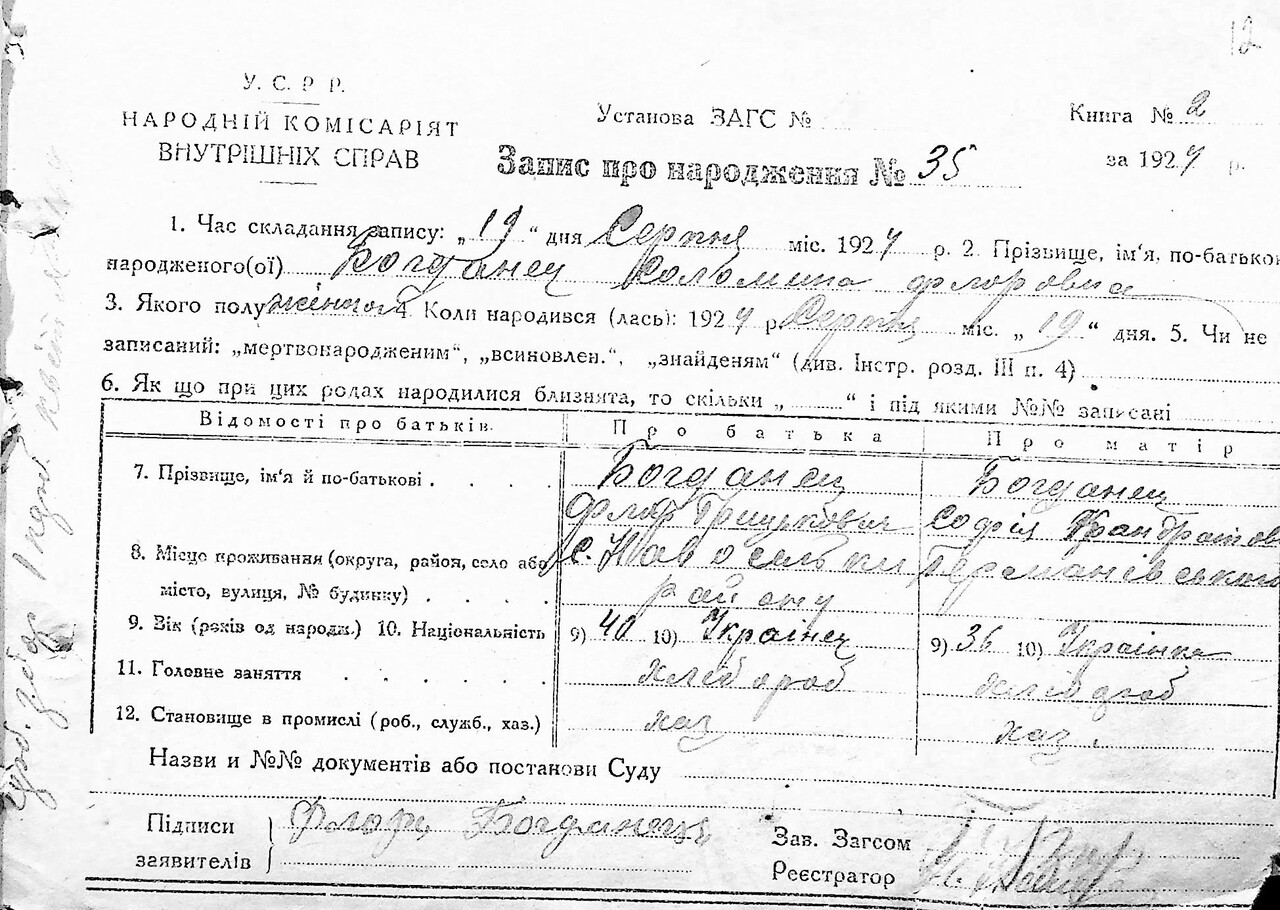 12
У. С. Р Р.
НАРОДНІЙ КОМІСАРІЯТ
ВНУТРІШНІХ СПРАВ
Установа ЗАГС №
Книга № 2
за 1924 р.
Запис про народження № 35
1. Час складання запису: „19“ дня Серпня міс. 1924 р. 2. Прізвище, ім‘я, по-батькові
народженого(ої) Богданец Соломина Флоровна
3. Якого полу жіночого 4. Коли народився (лась): 1924 р. Серпня міс. „19“ дня. 5. Чи не
записаний: „мертвонародженим“, „всиновлен.“, „знайденям“ (див. Інстр. розд. III п. 4)
6. Як що при цих родах народилися близнята, то скільки „ “ і під якими №№ записані
Відомості про батьків. Про батька Про матір
7. Прізвище, ім‘я й по-батькові . . . . Богданец Богданец
Флор Грицькович Софія
8. Місце проживання (округа, район, село або с. Новоселки Германівського
місто, вулиця, № будинку) . . . . району
9. Вік (років од народж.) 10. Національність 9) 40 10) Українец 9) 36 10) Українка
11. Головне заняття . . . . . . хлібороб хлібороб
12. Становище в промислі (роб., служб., хаз.) хаз хаз.
Назви и №№ документів або постанови Суду
Підписи
заявителів
Флор Богданец
Зав. Загсом
Реєстратор